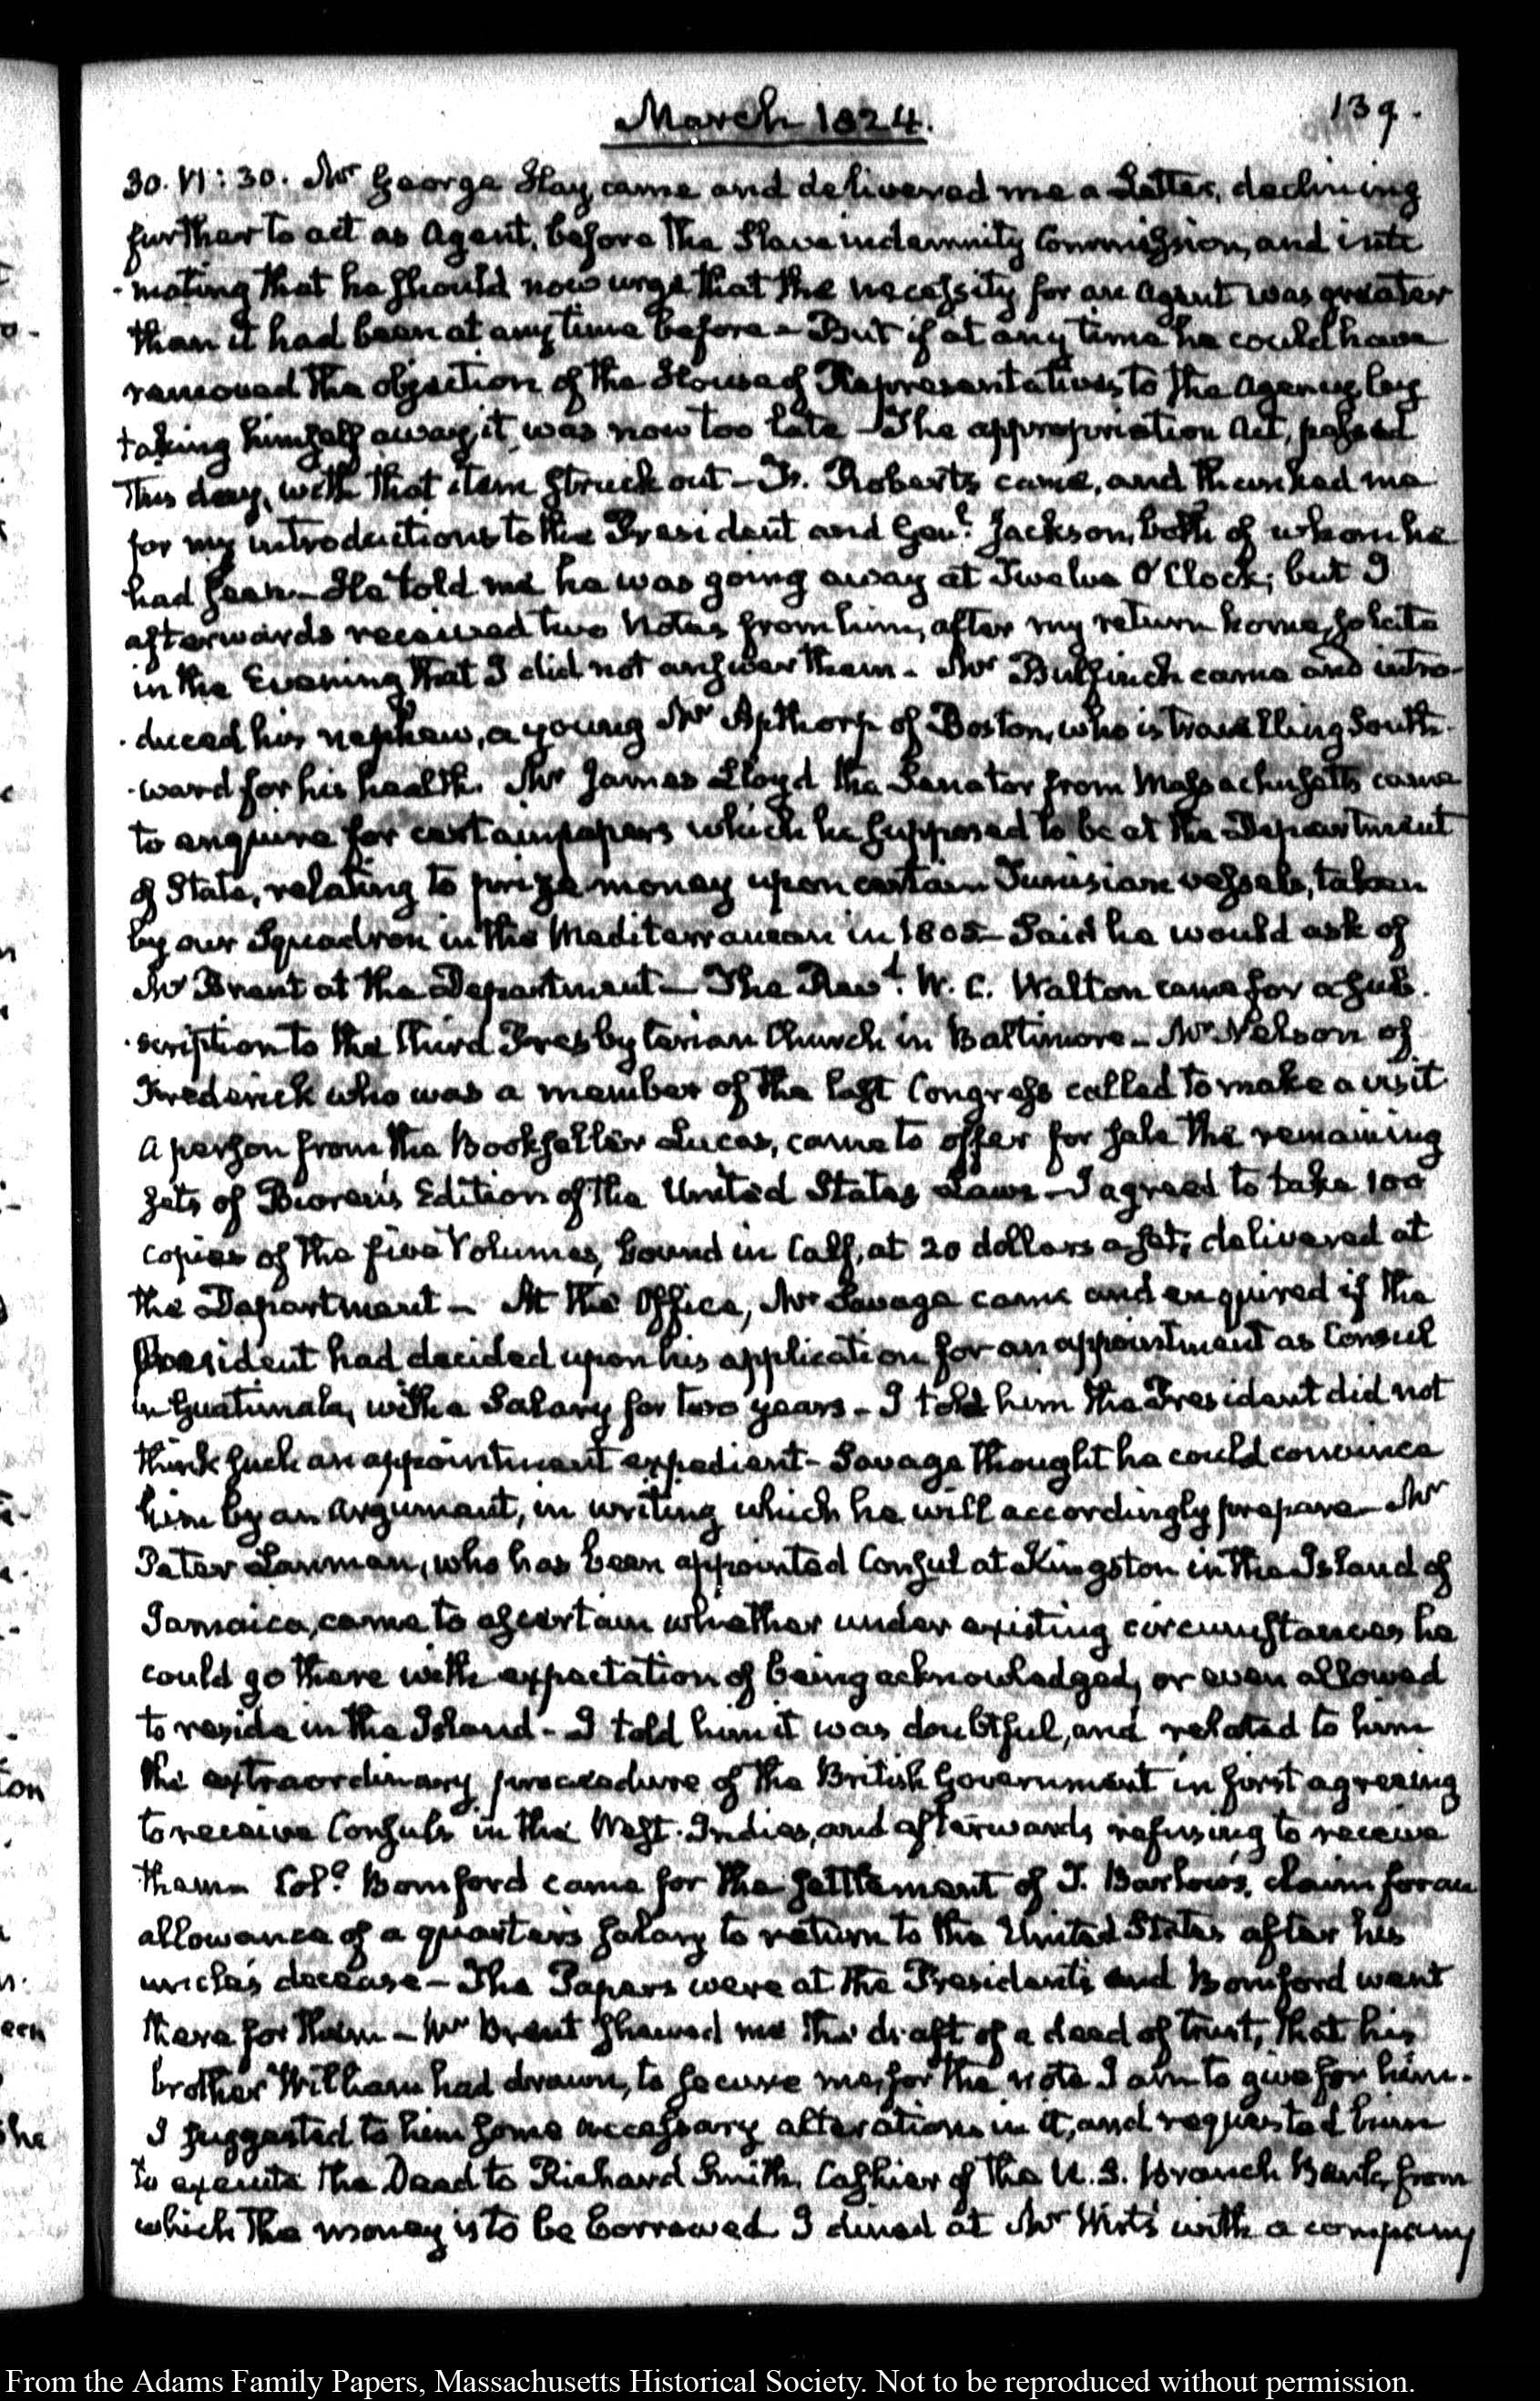 March 1824.
139.
30. VI: 30. Mr George Hay came and delivered me a Letter, declining
further to act as Agent, before the Slave indemnity Commission, and inti
-mating that he should now urge that the necessity for an Agent was greater
than it had been at any time before – But if at any time he could have
removed the objection of the House of Representatives to the Agency, by
taking himself away, it was now too late – The appropriation Act, passed
this day, with that item struck out – Roberts came, and thanked me
for my introductions to the President and Genl. Jackson, both of whom he
had seen – He told me he was going away at Twelve O'Clock; but I
afterwards received two Notes from him, after my return home, so late
in the Evening that I did not answer them – Mr Bulfinch came and intro-
-duced his nephew, a young Mr Apthorp of Boston, who is travelling South-
-ward for his health. Mr James Lloyd the Senator from Massachusetts came
to enquire for certain papers which he supposed to be at the Department
of State, relating to prize money upon certain Tunisian vessels, taken
by our Squadron in the Mediterranean in 1805 – Said he would ask of
Mr Brent at the Department – The Revd. W. C. Walton came for a sub-
-scription to the third Presbyterian Church in Baltimore – Mr Nelson of
Frederick who was a member of the last Congress called to make a visit
A person from the Bookseller Lucas, came to offer for sale the remaining
sets of Bioren's Edition of the United States Laws – I agreed to take 100
copies of the five Volumes, bound in Calf, at 20 dollars a set, delivered at
the Department – At the Office, Mr Savage came and enquired if the
President had decided upon his application for an appointment as Consul
in Guatimala, with a Salary for two years – I told him the President did not
think such an appointment expedient – Savage thought he could convince
him by an argument, in writing which he will accordingly prepare – Mr
Peter Lanman, who has been appointed Consul at Kingston in the Island of
Jamaica, came to ascertain whether under existing circumstances he
could go there with expectation of being acknowledged, or even allowed
to reside in the Island – I told him it was doubtful, and related to him
the extraordinary procedure of the British Government in first agreeing
to receive Consuls in the West-Indies, and afterwards refusing to receive
them – Coll. Bomford came for the settlement of T. Barlow's, claim for an
allowance of a quarter's salary to return to the United States after his
uncle's decease – The Papers were at the President's and Bomford went
there for them – Mr Brent shewed me the draft of a deed of trust, that his
brother William had drawn, to secure me, for the note I am to give for him.
I suggested to him some necessary alterations in it, and requested him
to execute the Deed to Richard Smith, Cashier of the U. S. Branch Bank, from
which the money is to be borrowed I dined at Mr Wirt's with a company
From the Adams Family Papers, Massachusetts Historical Society. Not to be reproduced without permission.